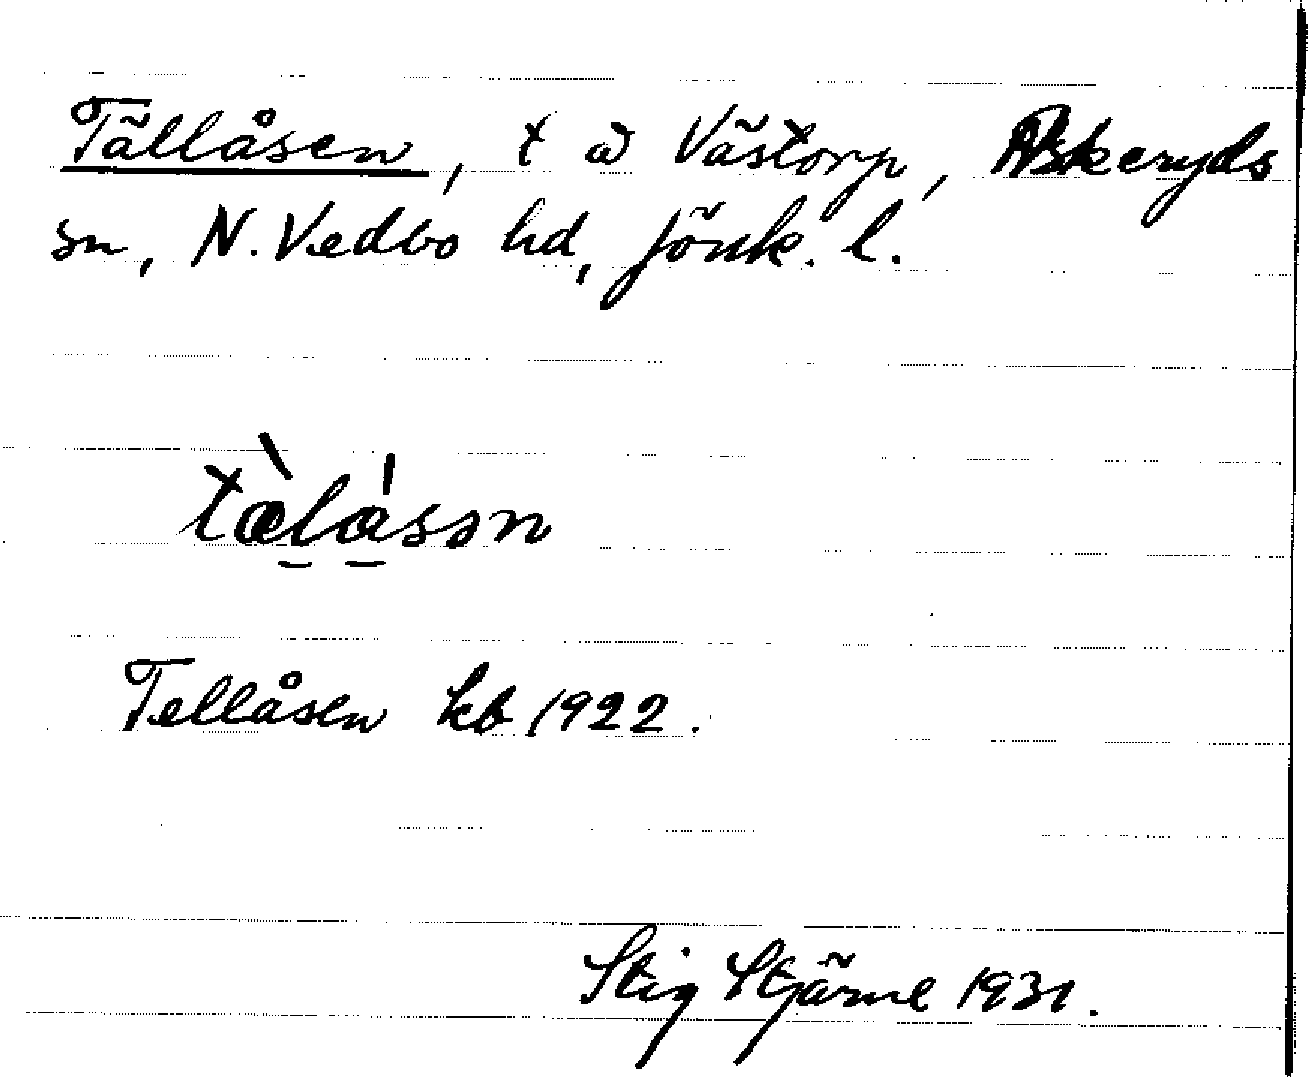 Tällåsen, t å Västorp, Askeryds
sn, N. Vedbo hd, Jönk. l.
tæ̀lásən
Tellåsen kb 1922.
Stig Stjärne 1931.